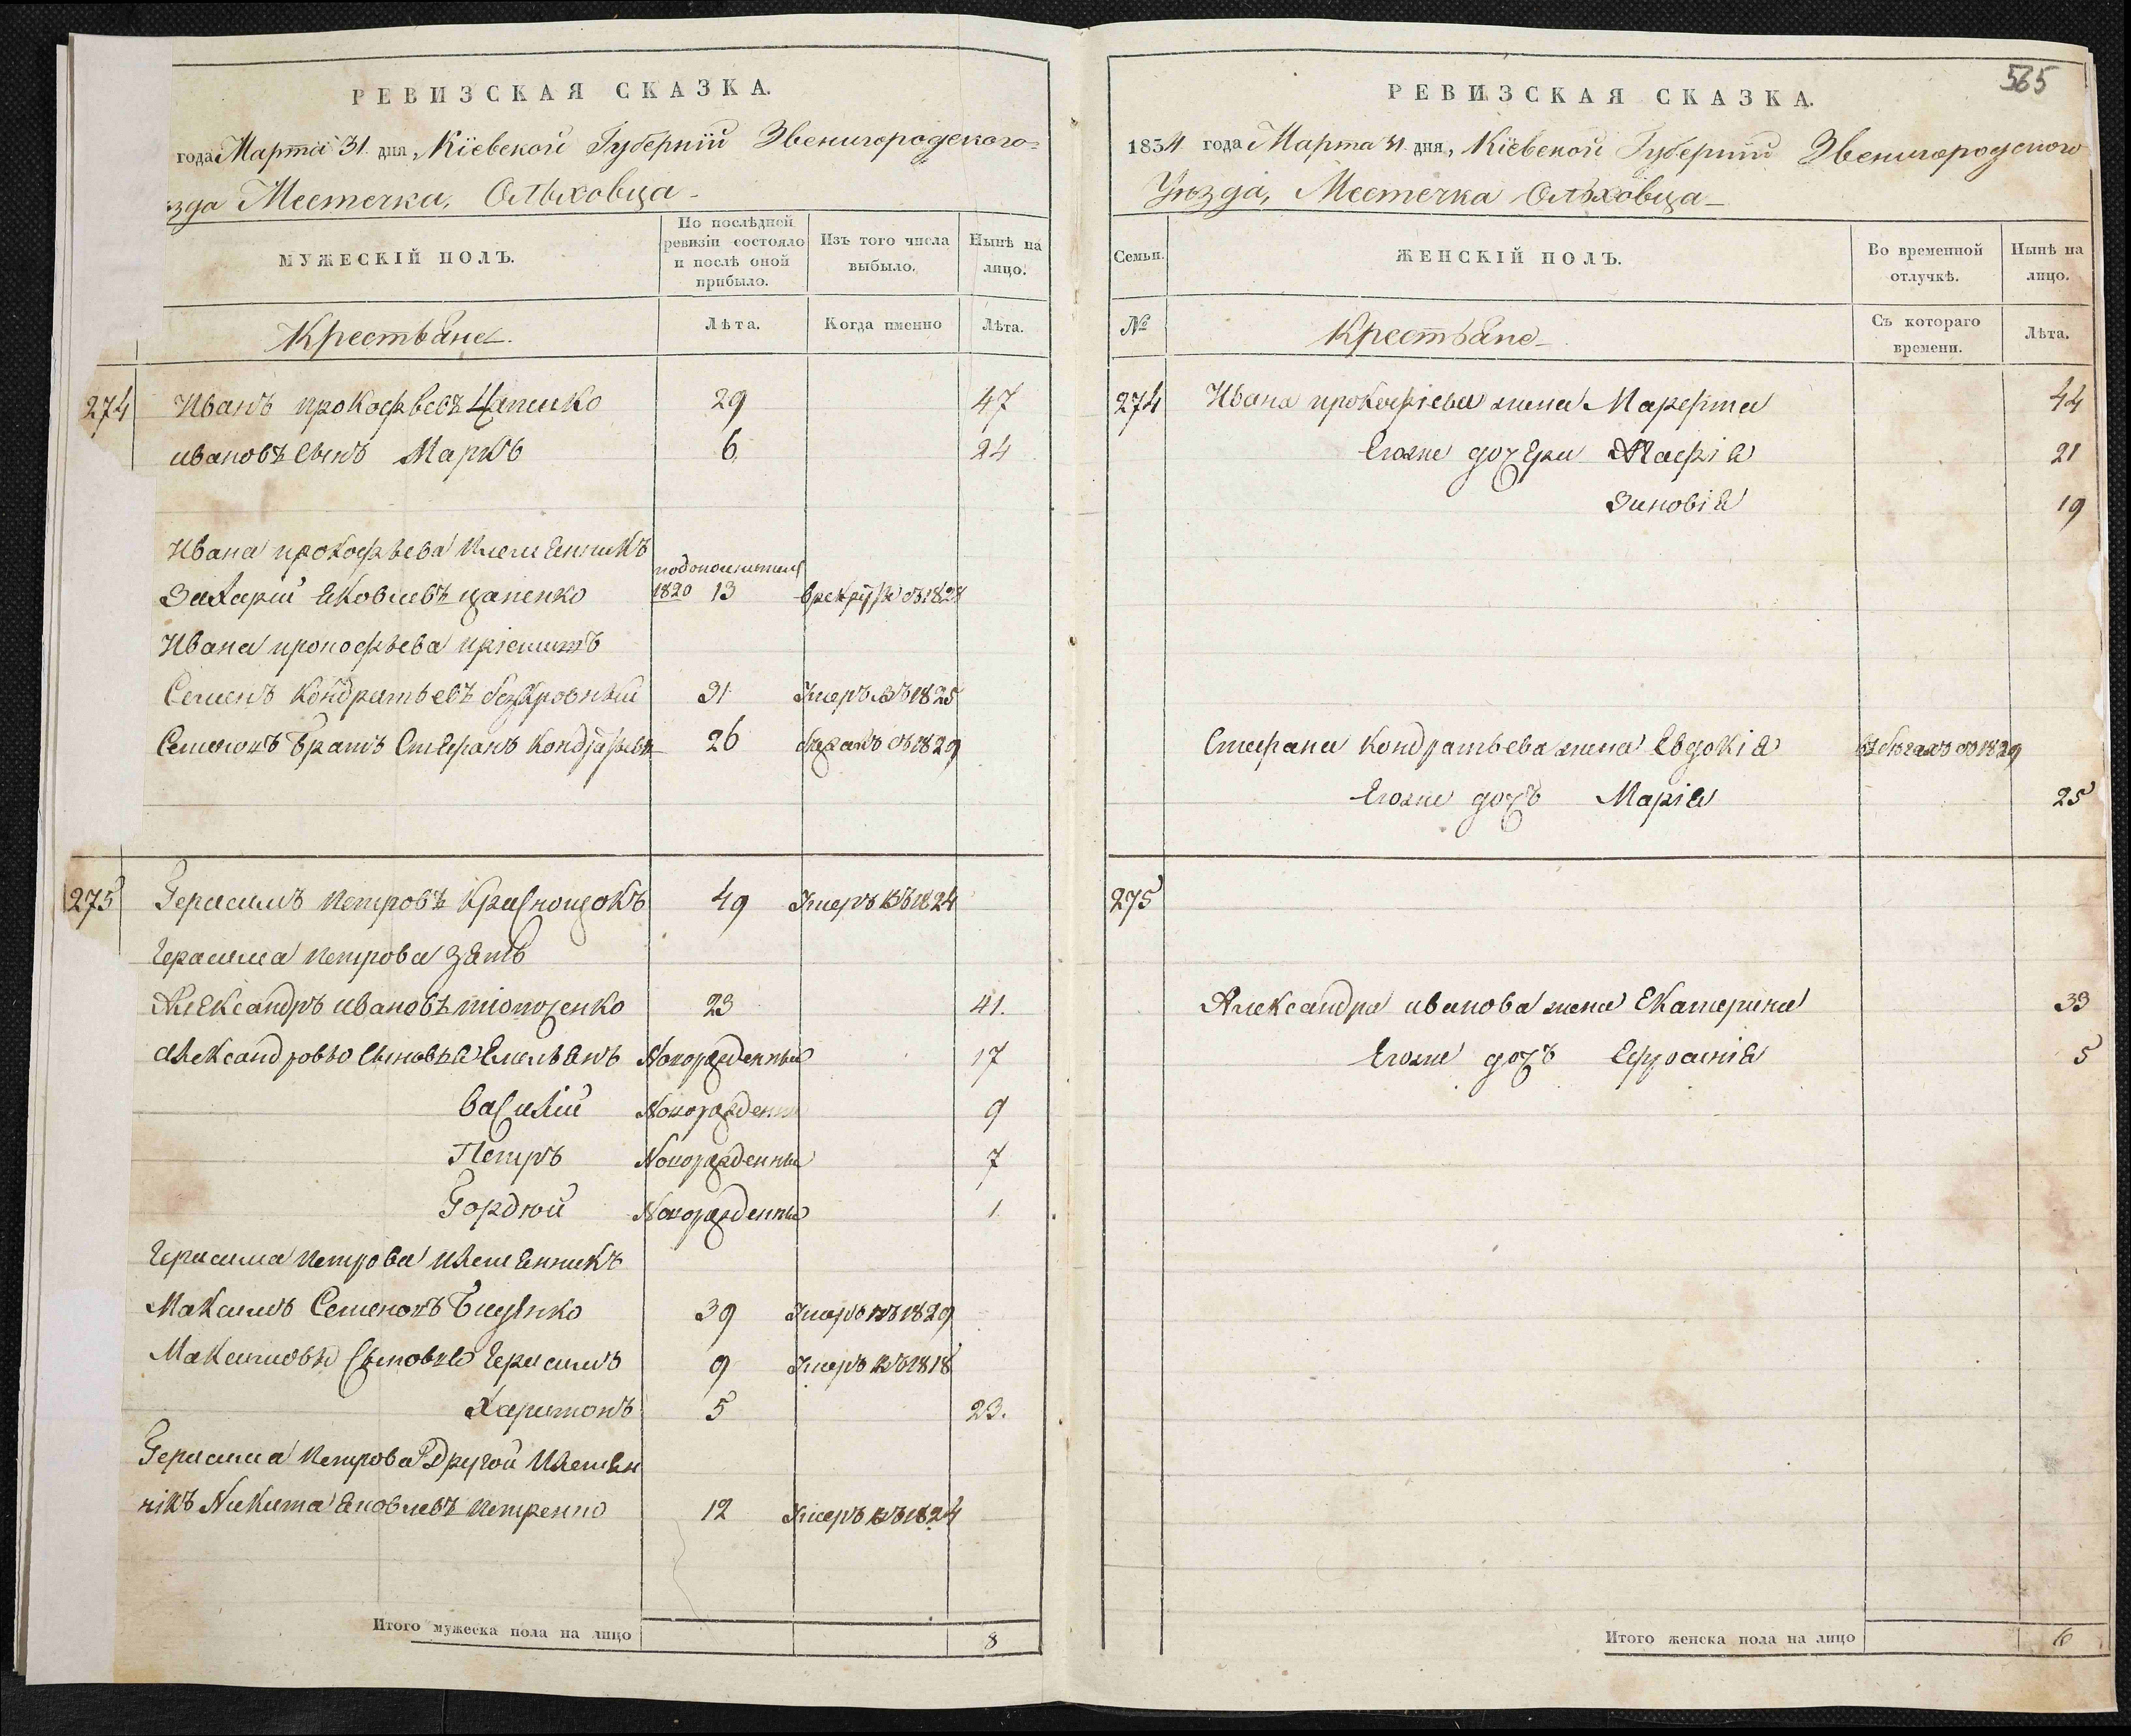 РЕВИЗСКАЯ СКАЗКА.
года Марта 31 дня, Кіевской Губерніи Звенигородского
зда Местечка, Ольховца
МУЖЕСКІЙ ПОЛЪ.
По послѣдней ревизіи состояло и послѣ оной прибыло.
Изъ того числа выбыло.
Нынѣ на лицо.
Крестьяне
Лѣта.
Когда именно
Лѣта.
274 Иванъ прокофьевъ Цапенко 29 47
ивановъ сынъ Марко 6 24
Ивана прокофьева племянникъ
Захарій яковлевъ цапенко 1820 13 врекруты въ 1828
Ивана прокофьева пріемишъ
Семенъ Кондратьевъ безкровный 31 Умеръ въ 1825
Семеновъ братъ Стефанъ Кондратьевъ 26 въ 1829
275 Герасимъ петровъ Краснощокъ 49 Умеръ въ 1824
Герасима петрова зять
Александръ ивановъ 23 41.
александровы сыновья Емельянъ Новорожденный 17
василій Новорожденный 9
Петръ Новорожденный 7
Гордѣй Новорожденный 1
Герасима петрова племянникъ
Максимъ Семеновъ 39 Умеръ въ 1829
Максимовы сыновья Герасимъ 9 Умеръ въ 1818
Харитонъ 5 23.
Герасима петрова другой племян
никъ Никита яковлевъ петренко 12 Умеръ въ 1824
Итого мужеска пола на лицо 8
565
РЕВИЗСКАЯ СКАЗКА.
1834 года Марта 31 дня, Кіевской Губерніи Звенигородского
Уѣзда, Местечка Ольховца
Семьи.
ЖЕНСКІЙ ПОЛЪ.
Во временной отлучкѣ.
Нынѣ на лицо.
№
Крестьяне
Съ котораго времени.
Лѣта.
274 Ивана прокофіева жена Марфта 44
Егоже дочери Агафія 21
Зиновія 19
Стефана кондратьева жена Евдокія въ бегахъ съ 1829
Егоже дочъ Марія 25
275
Александра иванова жена Екатерина 39
Егоже дочъ Ефросинія 5
Итого женска пола на лицо 6